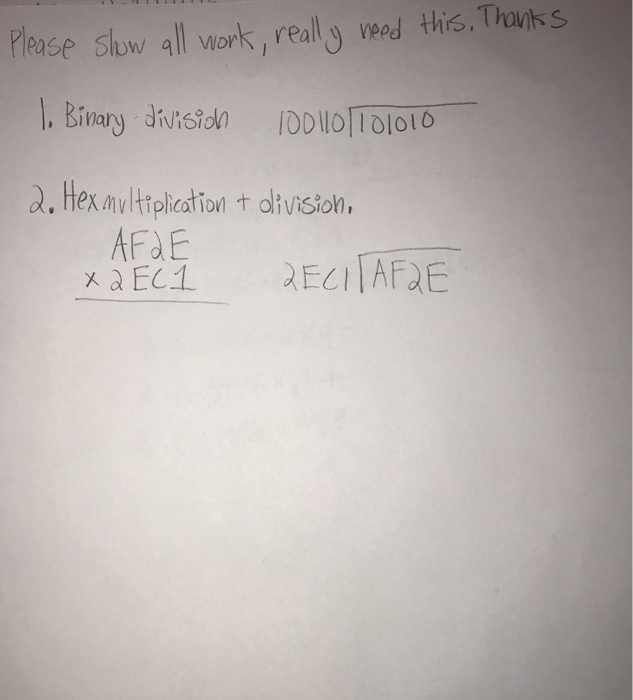 Please show all work, really need this. Thanks
1. Binary division 100110 101010
2. Hex multiplication + division.
AF2E
x 2EC1 2EC1 AF2E